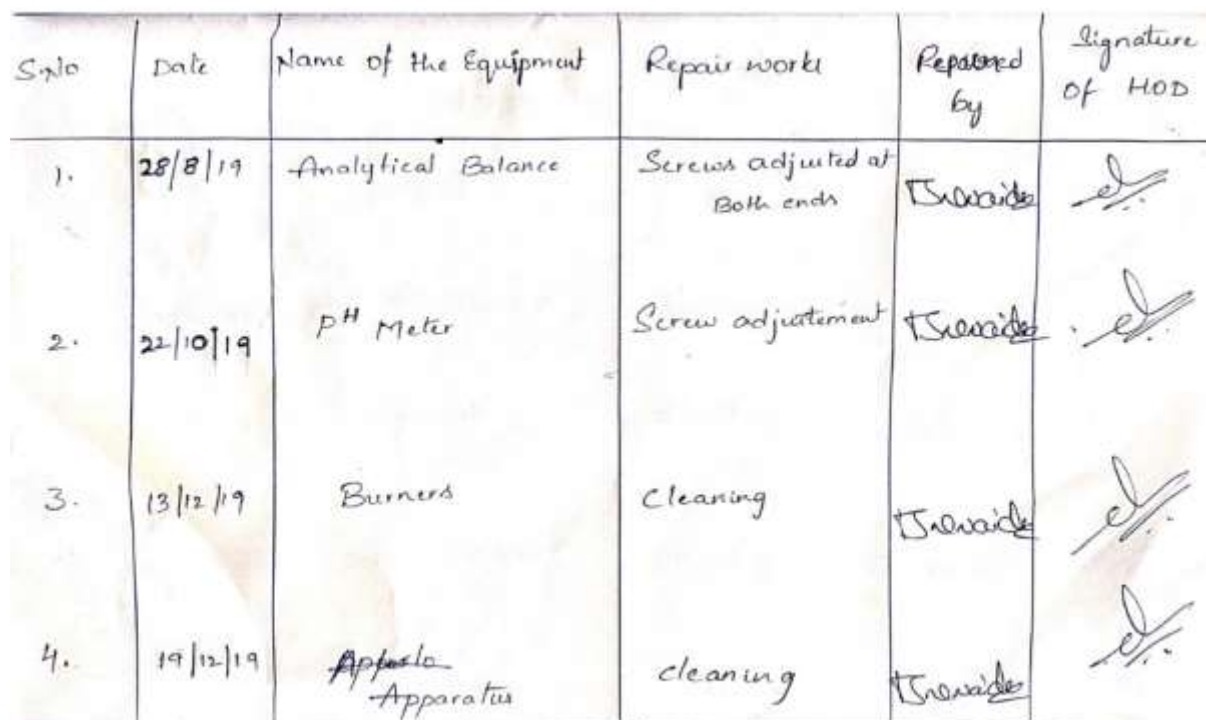 S.No Date Name of the Equipment Repair work Repaired by Signature Of HOD
1. 28/8/19 Analytical Balance Screws adjusted at
Both ends
2. 22/10/19 PH Meter Screw adjustement
3. 13/12/19 Burners Cleaning
4. 19/12/19 cleaning
Apparatus